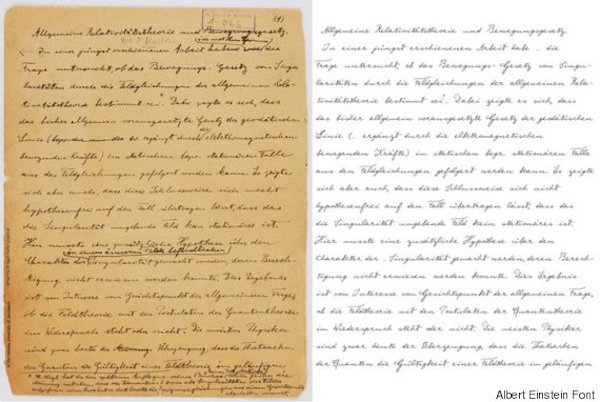 (1)
A-066
Allgemeine Relativitätstheorie und Bewegungsgesetz.
In einer jüngst erschienenen Arbeit haben wir die
Frage untersucht, ob das Bewegungs-Gesetz von Singu-
laritäten durch die Feldgleichungen der allgemeinen Rela-
tivitätstheorie bestimmt sei. Dabei zeigte es sich, dass
das bisher allgemein vorausgesetzte Gesetz der geodätischen
Linie ( ergänzt durch die elektromagnetischen
bewegenden Kräfte) im statischen bezw. stationären Falle
aus den Feldgleichungen gefolgert werden kann. Es zeigte
sich aber auch, dass diese Schlussweise sich nicht
hypothesenfrei auf den Fall übertragen lässt, dass das
die Singularität umgebende Feld kein stationäres ist.
Hier musste eine zusätzliche Hypothese über den
Charakter der Singularität gemacht werden, deren Berech-
tigung nicht erwiesen werden konnte. Dies Ergebnis
ist von Interesse vom Gesichtspunkt der allgemeinen Frage,
ob die Feldtheorie mit den Postulaten der Quantentheorie
im Widerspruch steht oder nicht. Die meisten Physiker
sind zwar heute der Überzeugung, dass die Thatsachen
der Quanten die Gültigkeit einer Feldtheorie im geläufigen
Allgemeine Relativitätstheorie und Bewegungsgesetz.
In einer jüngst erschienenen Arbeit habe . die
Frage untersucht, ob das Bewegungs-Gesetz von Singu-
laritäten durch die Feldgleichungen der allgemeinen Rela-
tivitätstheorie bestimmt sei. Dabei zeigte es sich, dass
das bisher allgemein vorausgesetzte Gesetz der geodätischen
Linie (. ergänzt durch die elektromagnetischen
bewegenden Kräfte) in statischen bezr. stationären Falle
aus den Feldgleichungen gefolgert werden kann. Es zeigte
sich aber auch, dass diese Schlussweise sich nicht
hypothesenfrei auf den Fall übertragen lässt, dass das
die Singularität umgebende Feld kein stationäres ist.
Hier musste eine zusätzliche Hypothese über den
Charakter der . Singularität gemacht werden, deren Berech-
tigung nicht erwiesen werden konnte. Dies Ergebnis
ist von Interesse vom Gesichtspunkt der allgemeinen Frage,
ob die Feldtheorie mit den Postulaten der Quantentheorie
in Wiederspruch steht oder nicht. Die meisten Physiker
sind zwar heute der Überzeugung, dass die Thatsachen
der Quanten die Gültigkeit einer Feldtheorie im geläufigen
Albert Einstein Font